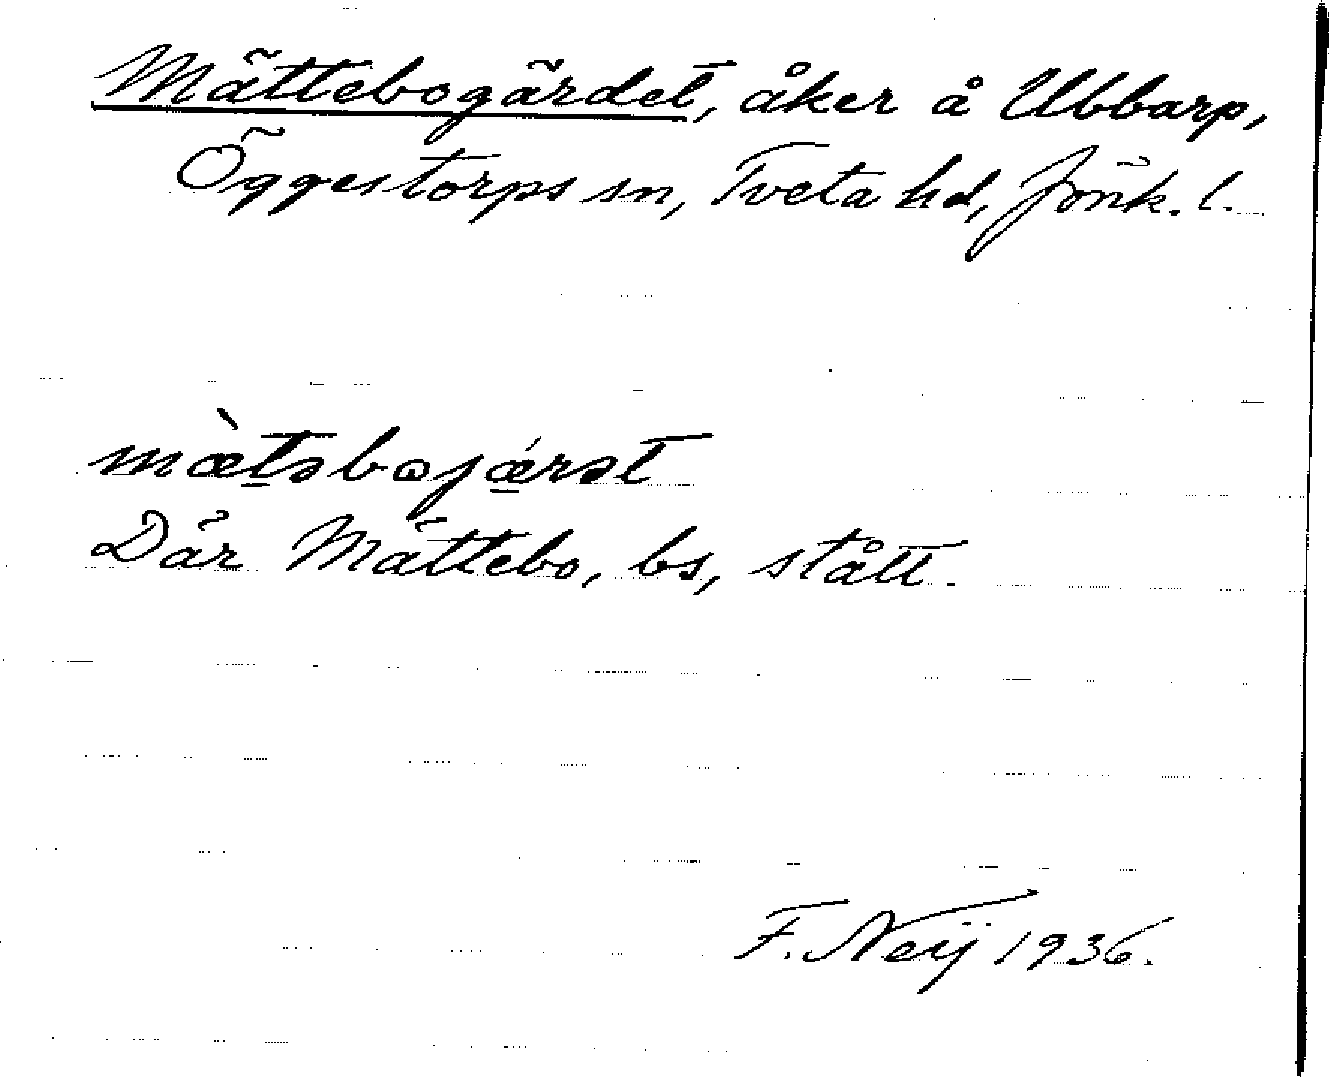 Mättebogärdet, åker å Ubbarp,
Öggestorps sn, Tveta hd, Jönk. l.
mæ̀t̠əbojǽ̠rət
Där Mättebo, bs, stått.
F. Neij 1936.